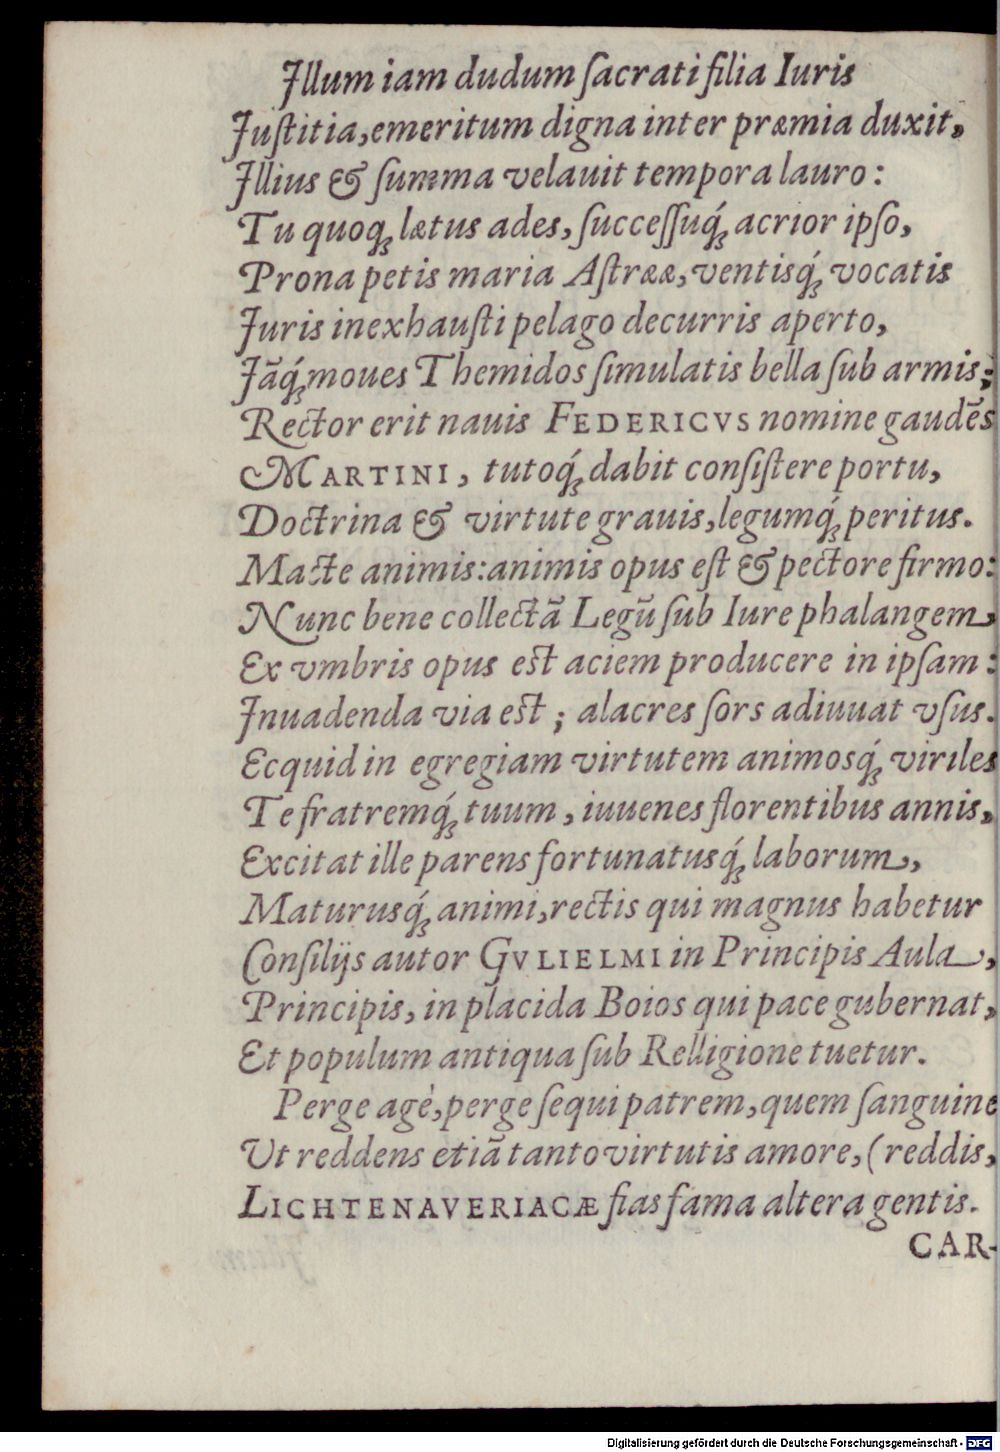 Illum iam dudum ſacrati filia Iuris
Iuſtitia, emeritum digna inter præmia duxit,
Illius & ſumma velauit tempora lauro:
Tu quoq; lætus ades, ſucceſſuq́; acrior ipſo,
Prona petis maria Aſtrææ, ventisq́; vocatis
Iuris inexhauſti pelago decurris aperto,
Iãq́; moues Themidos ſimulatis bella ſub armis;
Rector erit nauis FEDERICVS nomine gaudẽs
MARTINI, tutoq́; dabit conſiſtere portu,
Doctrina & virtute grauis, legumq́; peritus.
Macte animis: animis opus eſt & pectore firmo:
Nunc bene collectã Legũ ſub Iure phalangem,
Ex vmbris opus est aciem producere in ipſam:
Inuadenda via est; alacres ſors adiuuat vſus.
Ecquid in egregiam virtutem animosq́; viriles
Te fratremq́; tuum, iuuenes florentibus annis,
Excitat ille parens fortunatusq́; laborum,
Maturusq́; animi, rectis qui magnus habetur
Conſilijs autor GVLIELMI in Principis Aula,
Principis, in placida Boios qui pace gubernat,
Et populum antiqua ſub Relligione tuetur.
Perge agè, perge ſequi patrem, quem ſanguine
Ut reddens etiã tanto virtutis amore, (reddis,
LICHTENAVERIACÆ fias fama altera gentis.
CAR-
Digitalisierung gefördert durch die Deutsche Forschungsgemeinschaft - DFG